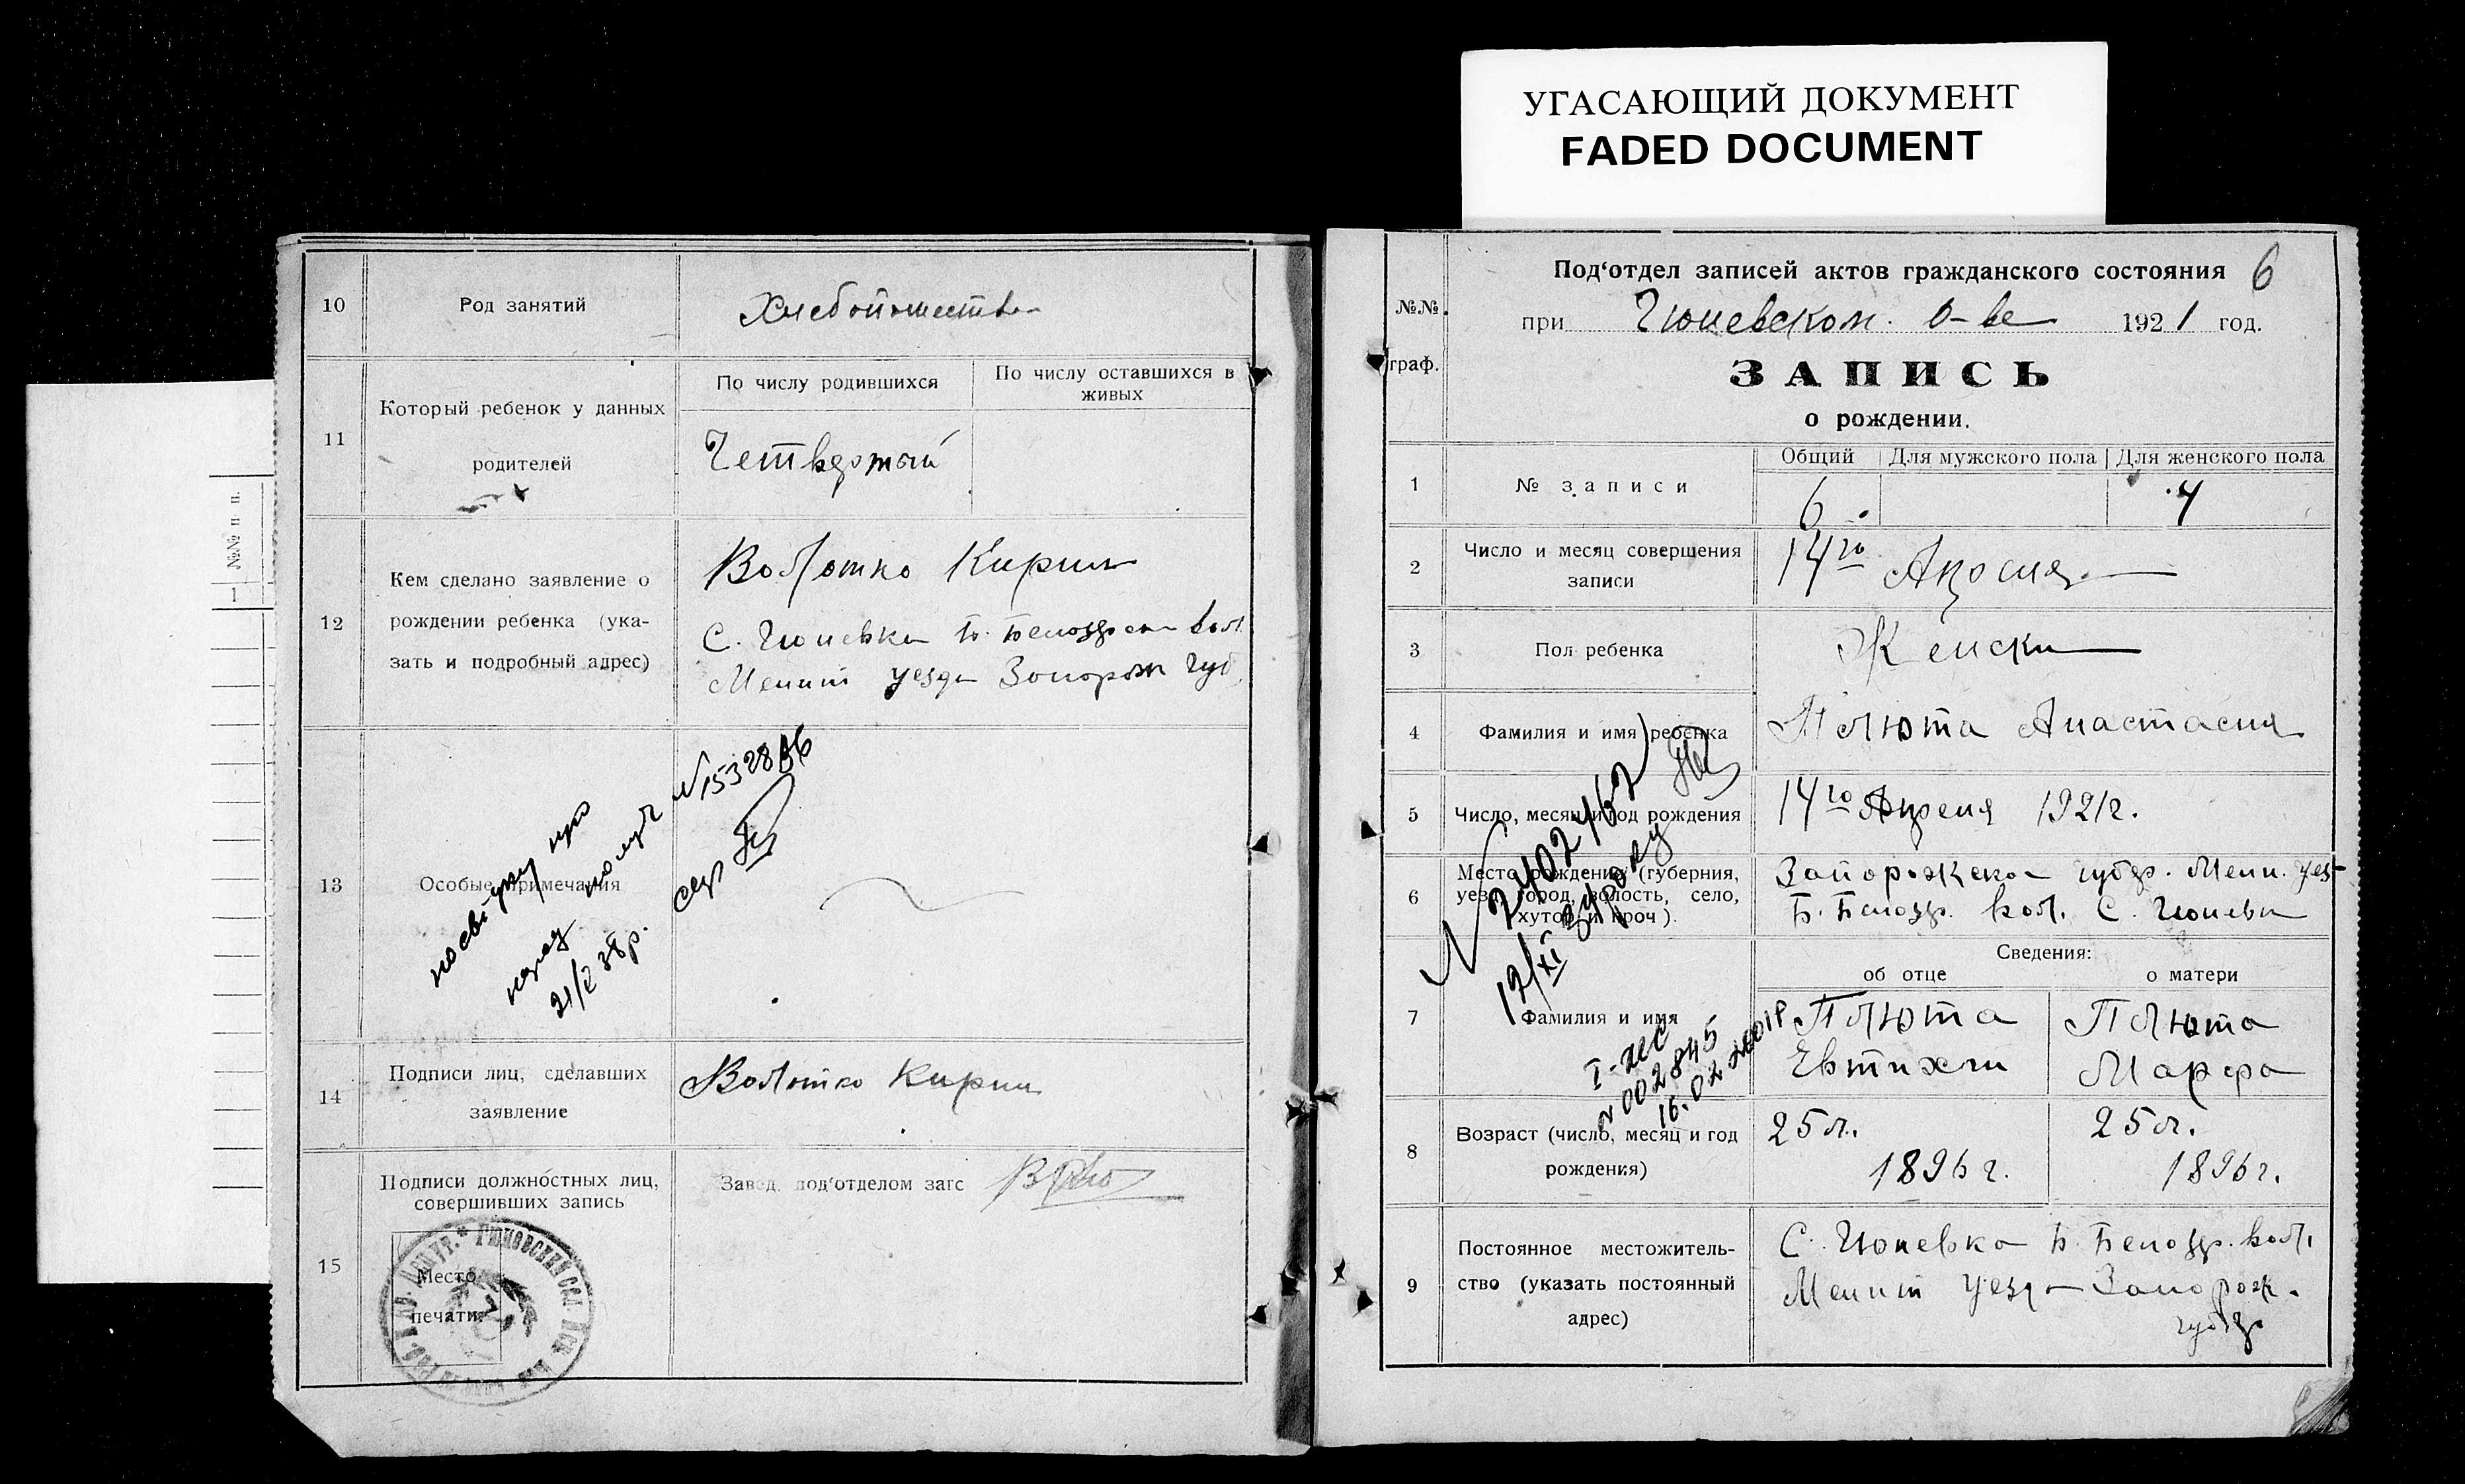 УГАСАЮЩИЙ ДОКУМЕНТ
FADED DOCUMENT
№№ п п.
1
10
Род занятий
Хлебопашество
11
Который ребенок у данных
родителей
По числу родившихся
По числу оставшихся в
живых
Четвертый
12
Кем сделано заявление о
рождении ребенка (ука-
зать и подробный адрес)
Волотко Кирил
С. Гюневка Б. Белозер вол
Мелит уезда Запорож губ.
13
Особые примечания
№1532886
21/
14
Подписи лиц, сделавших
заявление
Волотко Кирил
15
Подписи должностных лиц,
совершивших запись
Завед. под‘отделом загс
Место
печати
6
№№
граф.
Под‘отдел записей актов гражданского состояния
при Гюневском. о-ве 1921 год.
ЗАПИСЬ
о рождении.
1
№ записи
Общий
Для мужского пола
Для женского пола
6
4
2
Число и месяц совершения
записи
14го Апреля
3
Пол ребенка
Женски
4
Фамилия и имя ребенка
Плюта Анастасия
5
Число, месяц и год рождения
14го Апреля 1921г.
6
Место рождения (губерния,
уезд, город, волость, село,
хутор и проч).
Запорожской губер. Мели. уез
Б. Белозер. вол. С. Гюневка
№ 2402462
Сведения:
об отце
о матери
7
Фамилия и имя
Плюта
Евтихи
Плюта
Марфа
№ 0028445
16.02
8
Возраст (число, месяц и год
рождения)
25 л.
1896 г.
25 л.
1896 г.
9
Постоянное местожитель-
ство (указать постоянный
адрес)
С. Гюневка Б. Белозер. вол.
Мелит уезда Запорож.
губер